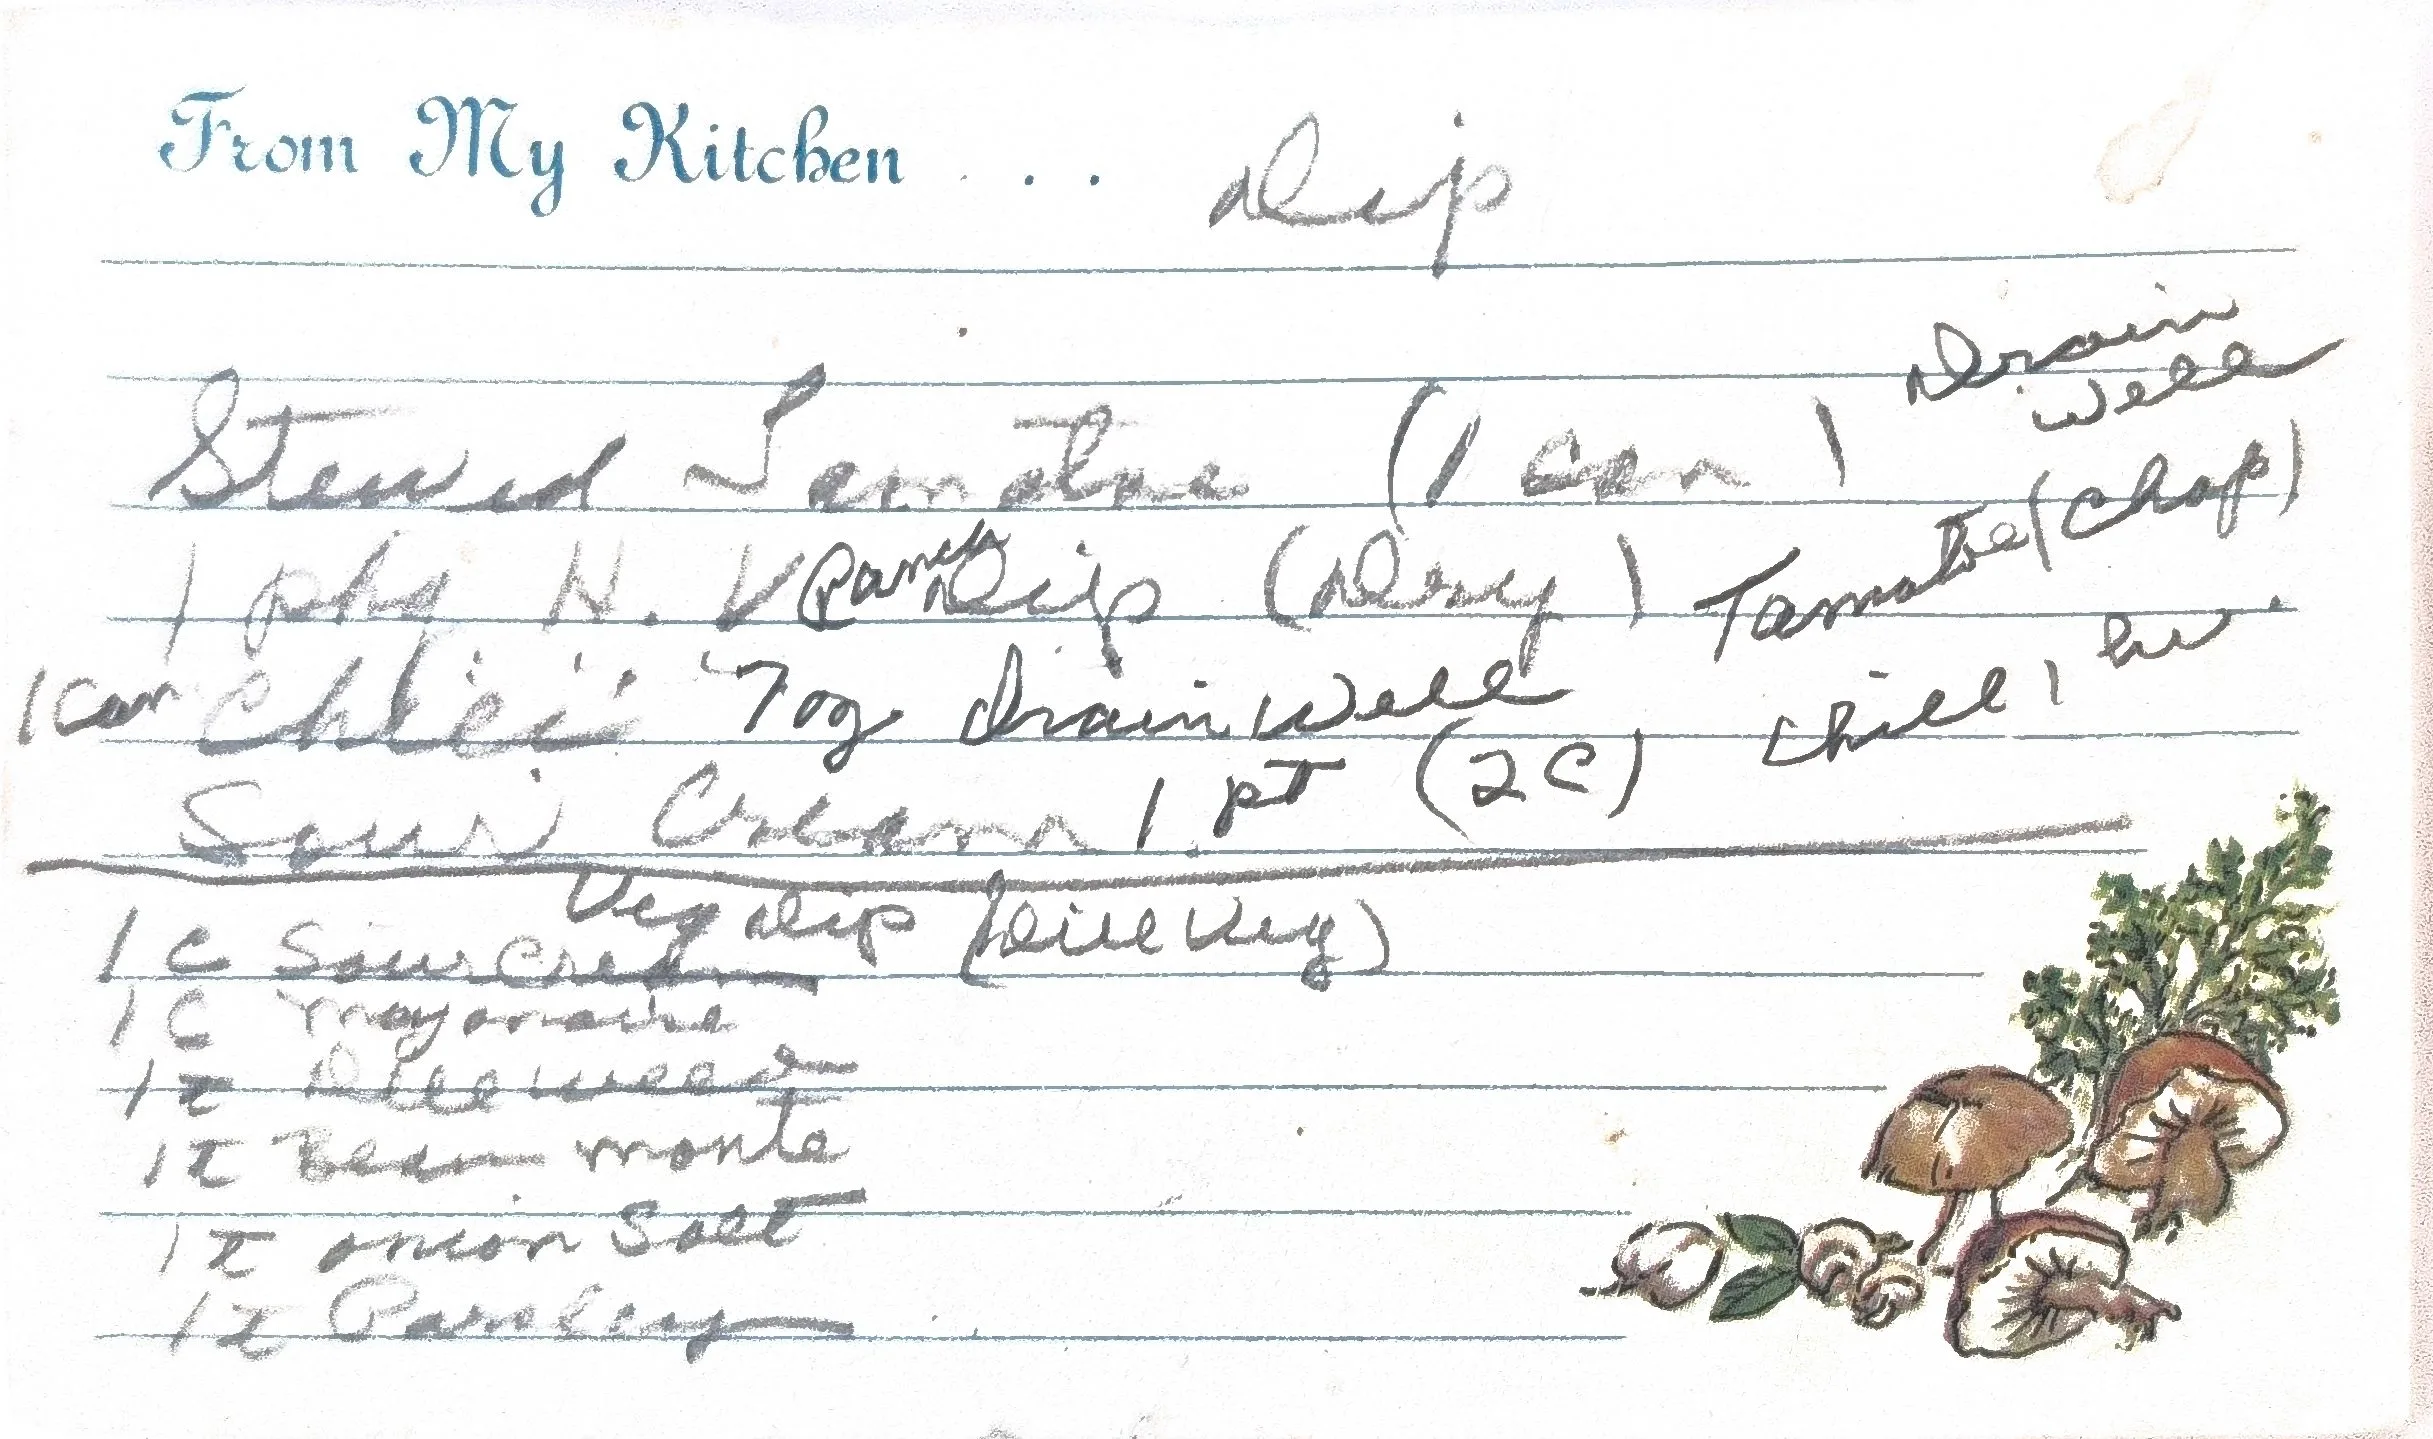 From My Kitchen . . . Dip
Stewed Tamatoe (1 can) Drain well
1 pkg H. V Ranch Dip (Dry) Tamatoe (Chop)
1 can Chlei 7 oz. drain well chill 1 hr.
Sour Cream 1 pt (2 C)
Veg dip (Dill Veg)
1 C Sour Cream
1 C mayonaise
1 t Dill weed
1 t Beau monte
1 t onion Salt
1 t Parsley